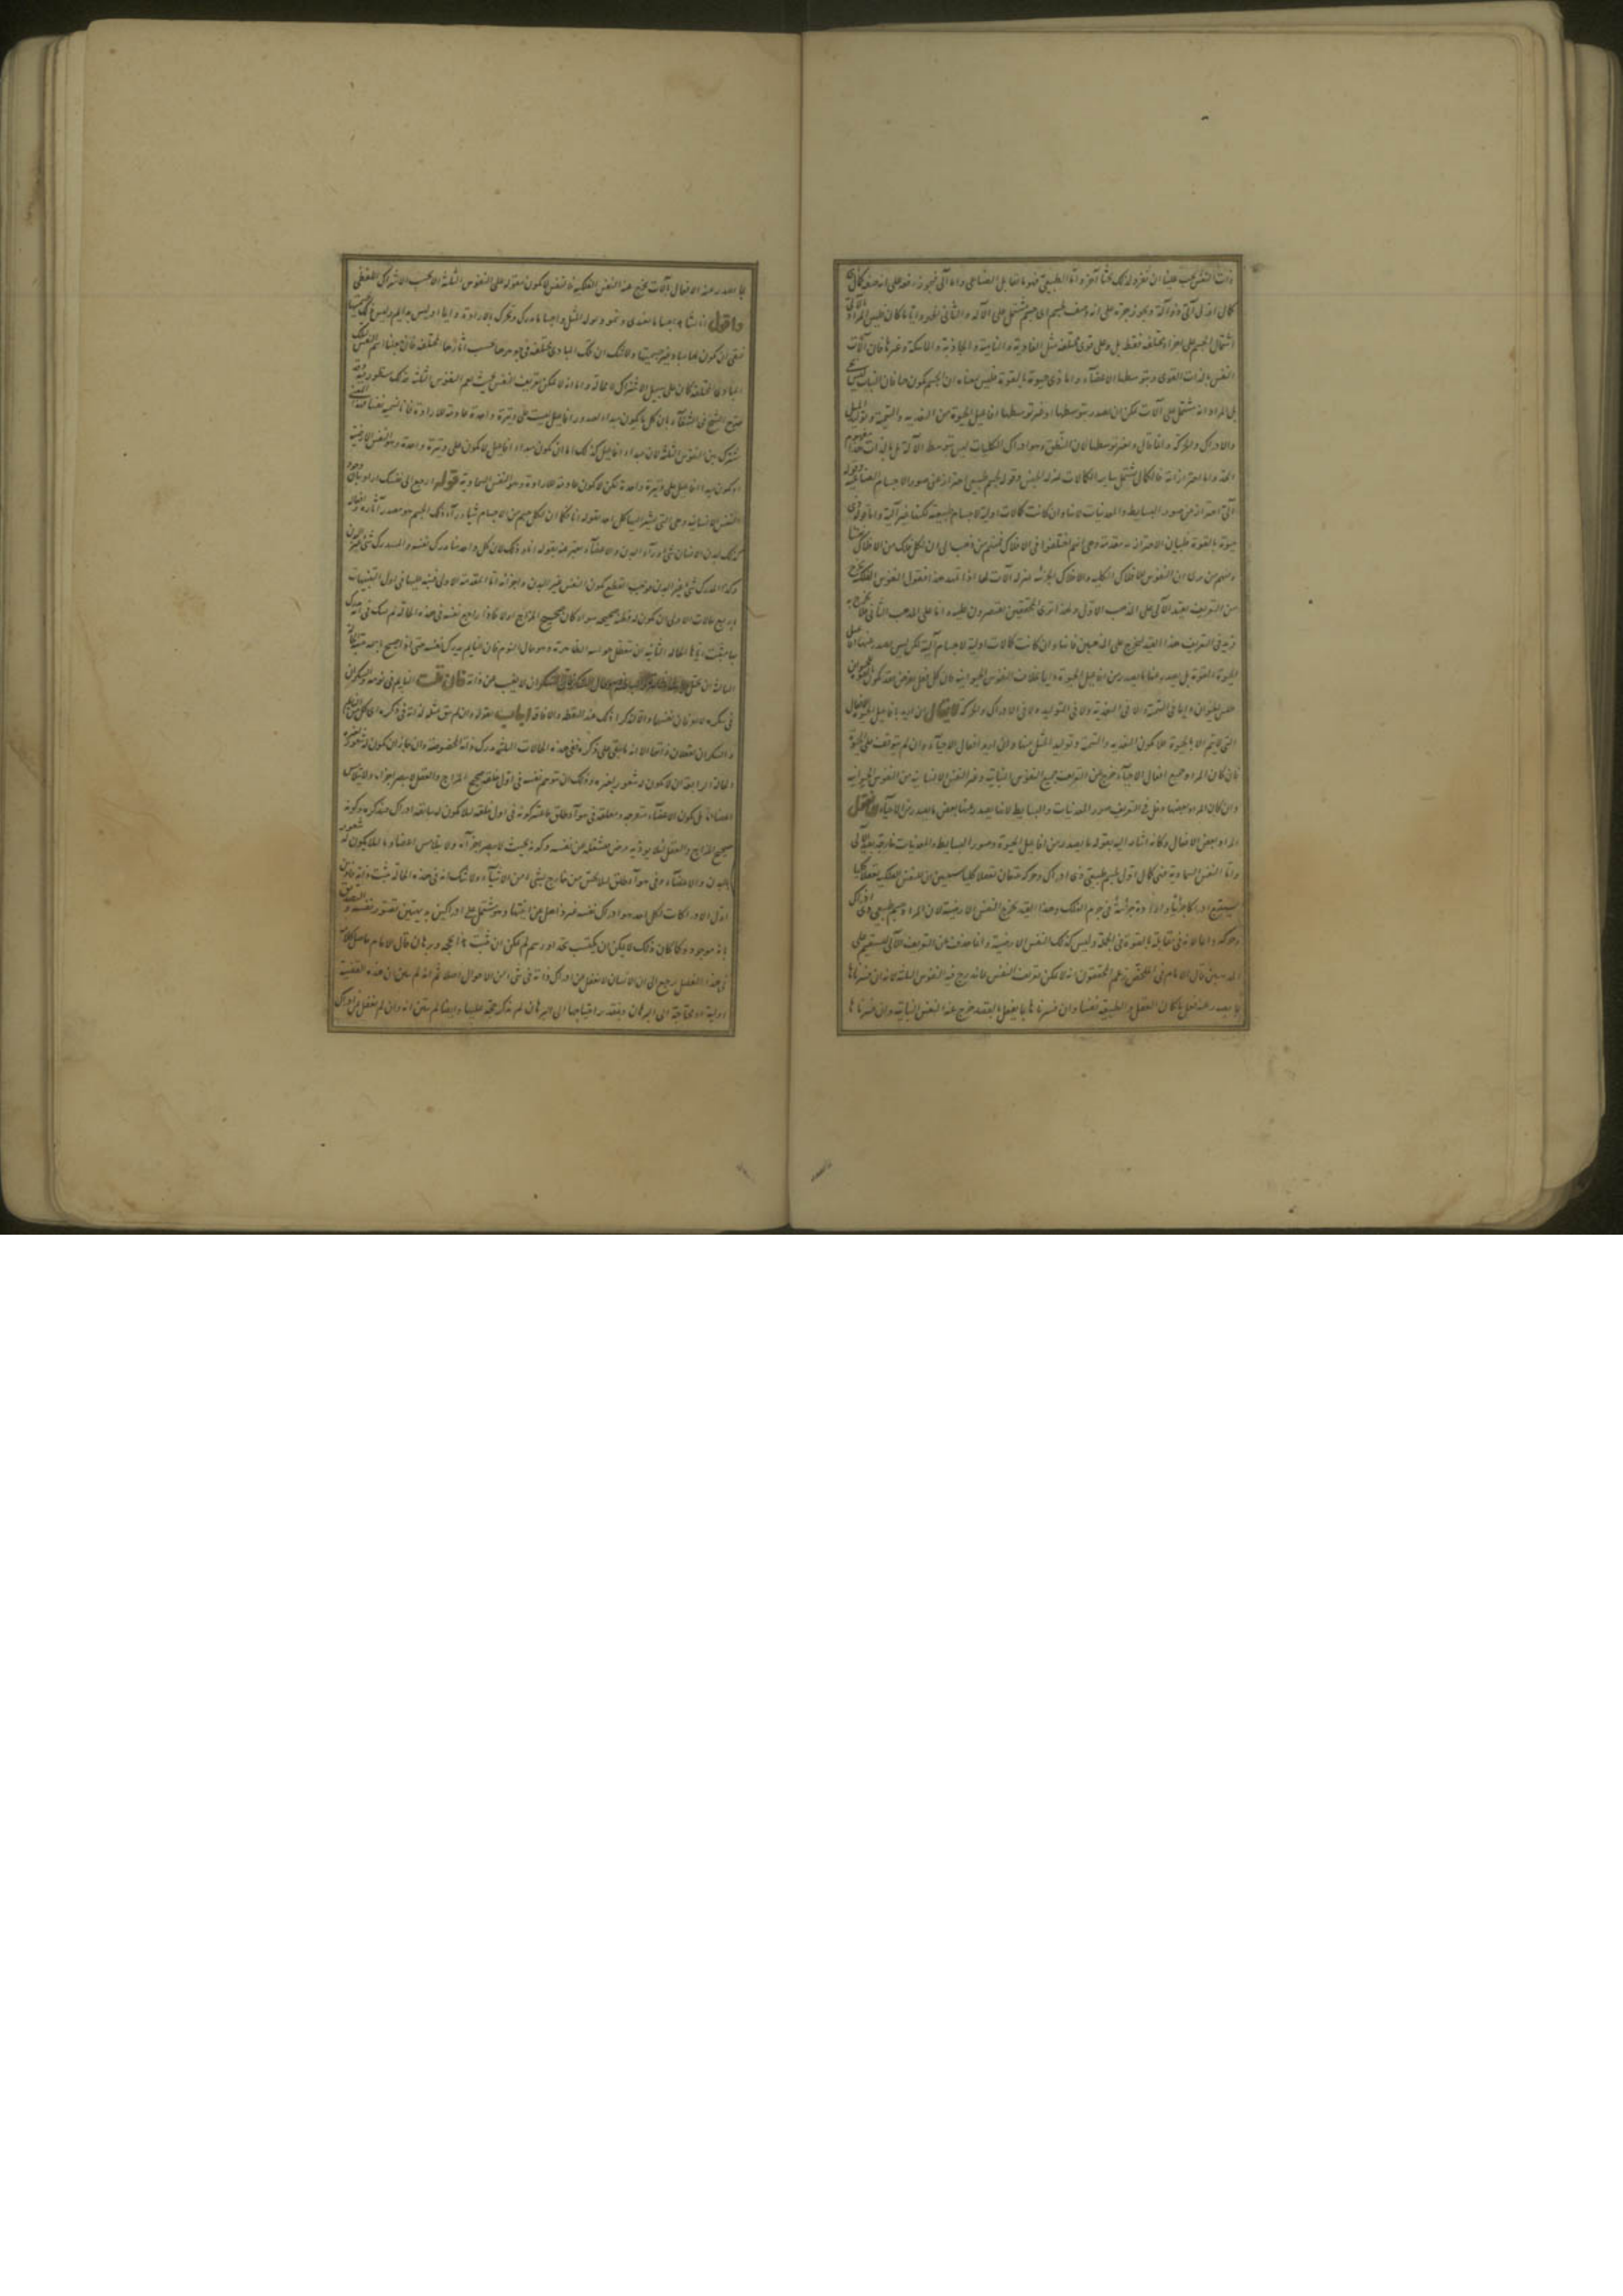 ذات النفس يجب علينا ان نفرد لذلك بحثا آخر واما الطبيعي فهو ما يقابل الصناعى واما آلى فيجوز رفعه على انه صفة كمال اى
كمال اول آلى ذو آلة ويجوز جره على انه وصف لجسم اى جسم مشتمل على الآلة والثانى اظهر واياما كان فليس المراد بالآلى
اشتمال الجسم على اجزاء مختلفة فقط بل وعلى قوى مختلفة مثل الغاذية والنامية والجاذبة والماسكة وغيرها فان آلات
النفس بالذات القوى وبتوسطها الاعضاء واما ذى حيوة بالقوة فليس معناه ان الجسم يكون حيا فان النبات ليس بحى
بل المراد انه مشتمل على آلات يمكن ان يصدر بتوسطها او بغير توسطها افاعيل الحيوة من التغذية والتنمية وتوليد المثل
والادراك والحركة وانما قال وبغير توسطها لان النطق وهو ادراك الكليات ليس بتوسط الآلة بل بالذات هذا مفهوم
الحد واما احترازاته فالكمال يشتمل ساير الكمالات بمنزلة الجنس وقوله لجسم طبيعى احتراز عن صور الاجسام الصناعية وقوله
آلى احتراز عن صور البسايط والمعدنيات لانها وان كانت كمالات اولية لاجسام طبيعية لكنها غير آلية واما قوله ذى
حيوة بالقوة فلبيان الاحتراز به مقدمة وهى انهم اختلفوا فى الافلاك فمنهم من ذهب الى ان لكل فلك من الافلاك نفسا
ومنهم من رأى ان النفوس للافلاك الكلية والافلاك الجزئية بمنزلة آلات لها اذا تمهد هذا فنقول النفوس الفلكية تخرج
من التعريف بقيد الآلى على المذهب الاول ولهذا ترى المحققين يقتصرون عليه واما على المذهب الثانى فلا تخرج به
فزيد فى التعريف هذا القيد لتخرج على المذهبين فانها وان كانت كمالات اولية لاجسام آلية لكن ليس يصدر عنها افاعيل
الحيوة بالقوة بل يصدر عنها ما يصدر من افاعيل الحيوة دايما بخلاف النفوس الحيوانية فان كل فعل يعرض فقد يكون بالقوة
فليس الحيوان دايما فى التنمية ولا فى التغذية ولا فى التوليد ولا فى الادراك والحركة لا يقال ان اريد بافاعيل الحيوة افعال
التى لا يتم الا بالحيوة فلا يكون التغذية والتنمية وتوليد المثل منها وان اريد افعال الاحياء وان لم يتوقف على الحيوة
فان كان المراد جميع افعال الاحياء خرج عن التعريف جميع النفوس النباتية وغير النفس الانسانية من النفوس الحيوانية
وان كان المراد بعضها دخل فى التعريف صور المعدنيات والبسايط لانها يصدر عنها بعض ما يصدر من الاحياء لانا نقول
المراد بعض الافعال وكانه اشار اليه بقوله ما يصدر من افاعيل الحيوة وصور البسايط والمعدنيات خارجة بقيد الآلى
واما النفس السماوية فهى كمال اول لجسم طبيعى ذى ادراك وحركة يتبعان تعقلا كليا
وحركة دايما لانه فى مقابلة بالقوة فى الجملة وليس كذلك النفس الارضية وانما حذف عن التعريف الآلى ليستقيم على
المذهبين قال الامام فى الملخص زعم المحققون انه لا يمكن تعريف النفس بما يندرج فيه النفوس الثلثة لانه ان فسرناها
بما يصدر عنه فعل ما كان العقل والطبيعة نفسا وان فسرناها بما يفعل بالقصد خرج عنه النفس النباتية وان فسرناها
بما يصدر عنه الافعال بآلات يخرج عنه النفس الفلكية فالنفس لا يكون مقولة على النفوس الثلثة الا بحسب الاشتراك اللفظى
واقول انا نشاهد اجساما تغتذى وتنمو وتولد المثل واجساما تدرك وتحرك بالارادة
فبقى ان يكون لها مبادى غير جسميتها ولا شك ان تلك المبادى مختلفة فى جوهرها حسب آثارها المختلفة فان جعلنا اسم النفس لتلك
المبادى المختلفة كان على سبيل الاشتراك لا محالة واما انه لا يمكن تعريف النفس بحيث يعم النفوس الثلثة فذلك منظور فيه
صرح الشيخ فى الشفاء بان كل ما يكون مبدأ لصدور افاعيل ليست على وتيرة واحدة عادمة للارادة فانا نسميه نفسا
مشترك بين النفوس الثلثة لان مبداء افاعيل كذلك اما ان يكون مبداء افاعيل لا يكون على وتيرة واحدة وهو النفس الارضية
او يكون مبداء افاعيل على وتيرة واحدة لكن لا يكون عادمة للارادة وهو النفس السماوية قوله ارجع الى نفسك اراد بيان وجود
النفس الانسانية وهى التى يشير اليها كل احد بقوله انا فكما ان لكل جسم من الاجسام شيئا وراء ذلك الجسم هو مصدر آثاره وافعاله
كذلك لبدن الانسان شىء وراء البدن والاعضاء يعبر عنه بقوله انا وذلك لان كل واحد منا يدرك نفسه والمدرك شىء غير البدن
وكذا المدرك شىء غير البدن فوجب القطع بكون النفس غير البدن واجزائه اما المقدمة الاولى فنبه عليها فى اول التنبيهات
باربع حالات الاولى ان يكون له فطنة صحيحة سواء كان صحيح المزاج او لا فاذا راجع نفسه فى هذه الحالة لم يشك
الحالة الثانية ان يتعطل حواسه الظاهرة وهو حال النوم فان النايم يدرك نفسه
لا يغيب عن ذاته فان قلت النايم فى نومه والسكران
فى سكره لا يعرفان نفسهما والا لتذكرا ذلك عند اليقظة والافاقة اجاب بقوله وان لم يثبت تمثله لذاته فى ذكره
والسكران يتعقلان ذاتهما الا انه ما يبقى على ذكره ففى هذه الحالات الثلث يدرك ذاته المخصوصة وان جاز ان يكون له شعور بغيره
الحالة الرابعة ان لا يكون له شعور بغيره وذلك ان يتوهم نفسه فى اول خلقه صحيح المزاج والعقل لا يبصر اجزاءه ولا يتلامس
اعضاؤه بل يكون الاعضاء منفرجة ومعلقة فى هواء طلق فاعتبر كونه فى اول خلقه لئلا يكون له سابقة ادراك متذكرة وكونه
صحيح المزاج والعقل لئلا يؤذيه مرض يشغله عن نفسه وكونه بحيث لا يبصر اجزاءه ولا يتلامس اعضاؤه لئلا يكون له شعور
بالبدن والاعضاء وفى هواء طلق لئلا يحس من خارج بشىء من الاشياء ولا شك انه فى هذه الحالة يثبت ذاته فاذن
اول الادراكات لكل احد هو ادراك نفسه
بانه موجود وكما كان ذلك لا يمكن ان يكتسب بحد او رسم لم يمكن ان يثبت بحجة وبرهان قال الامام حاصل كلامه
فى هذا الفصل يرجع الى ان الانسان لا يغفل عن ادراك ذاته فى شىء من الاحوال اصلا ثم انه لم يبين ان هذه القضية
اولية او محتاجة الى البرهان وبتقدير احتياجها الى البرهان لم يذكر حجة عليها وايضا لم يبين انه وان لم يغفل عن ادراك